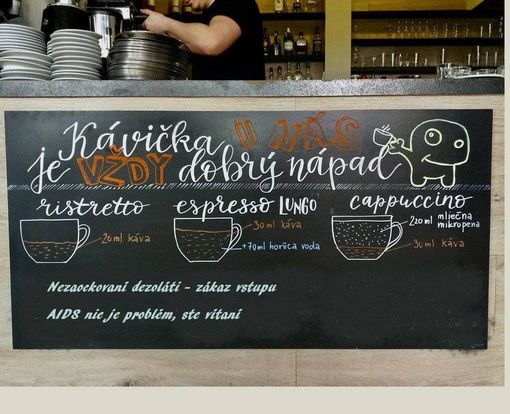 Kávička U NÁS
je VŽDY dobrý nápad
ristretto espresso LUNGO cappuccino
20ml káva
30 ml káva
+70ml horúca voda
220ml mliečna
mikropena
30 ml káva
Nezaockovaní dezoláti - zákaz vstupu
AIDS nie je problém, ste vítaní